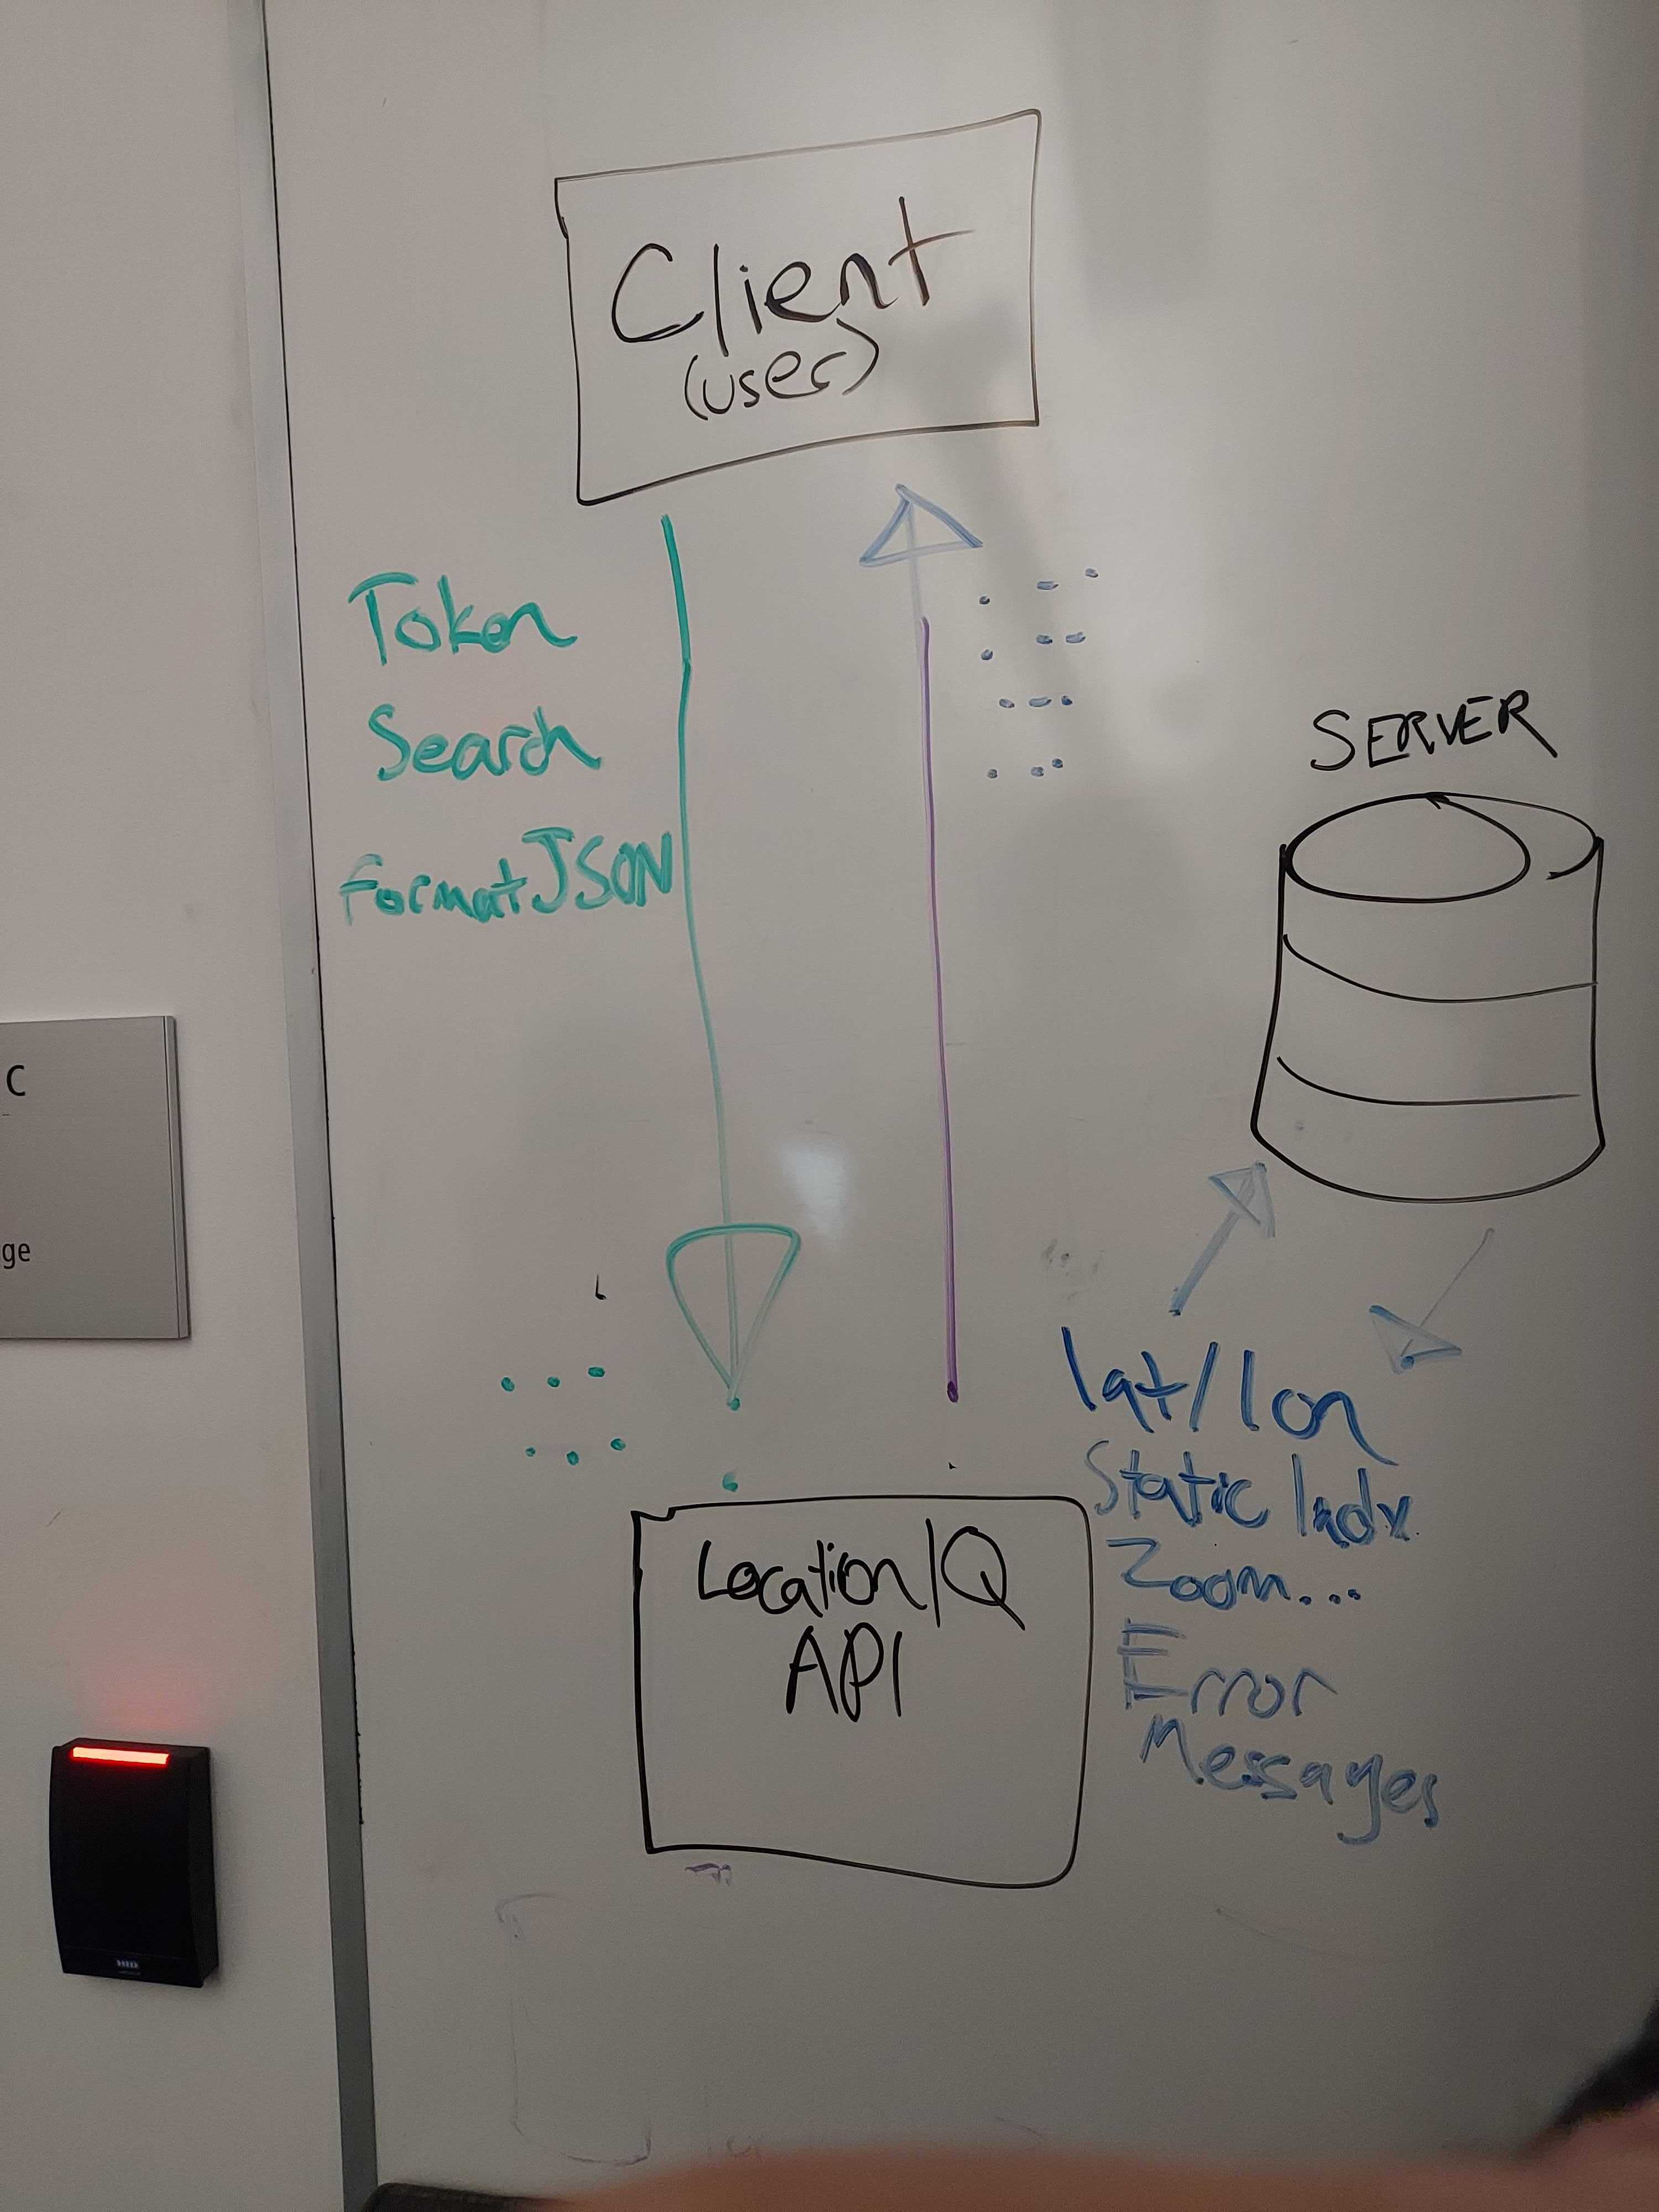 Client
(user)
Token
Search
format JSON
SERVER
C
ge
lat/lon
Static
Zoom...
Error
Messages
Location/Q
API
HID